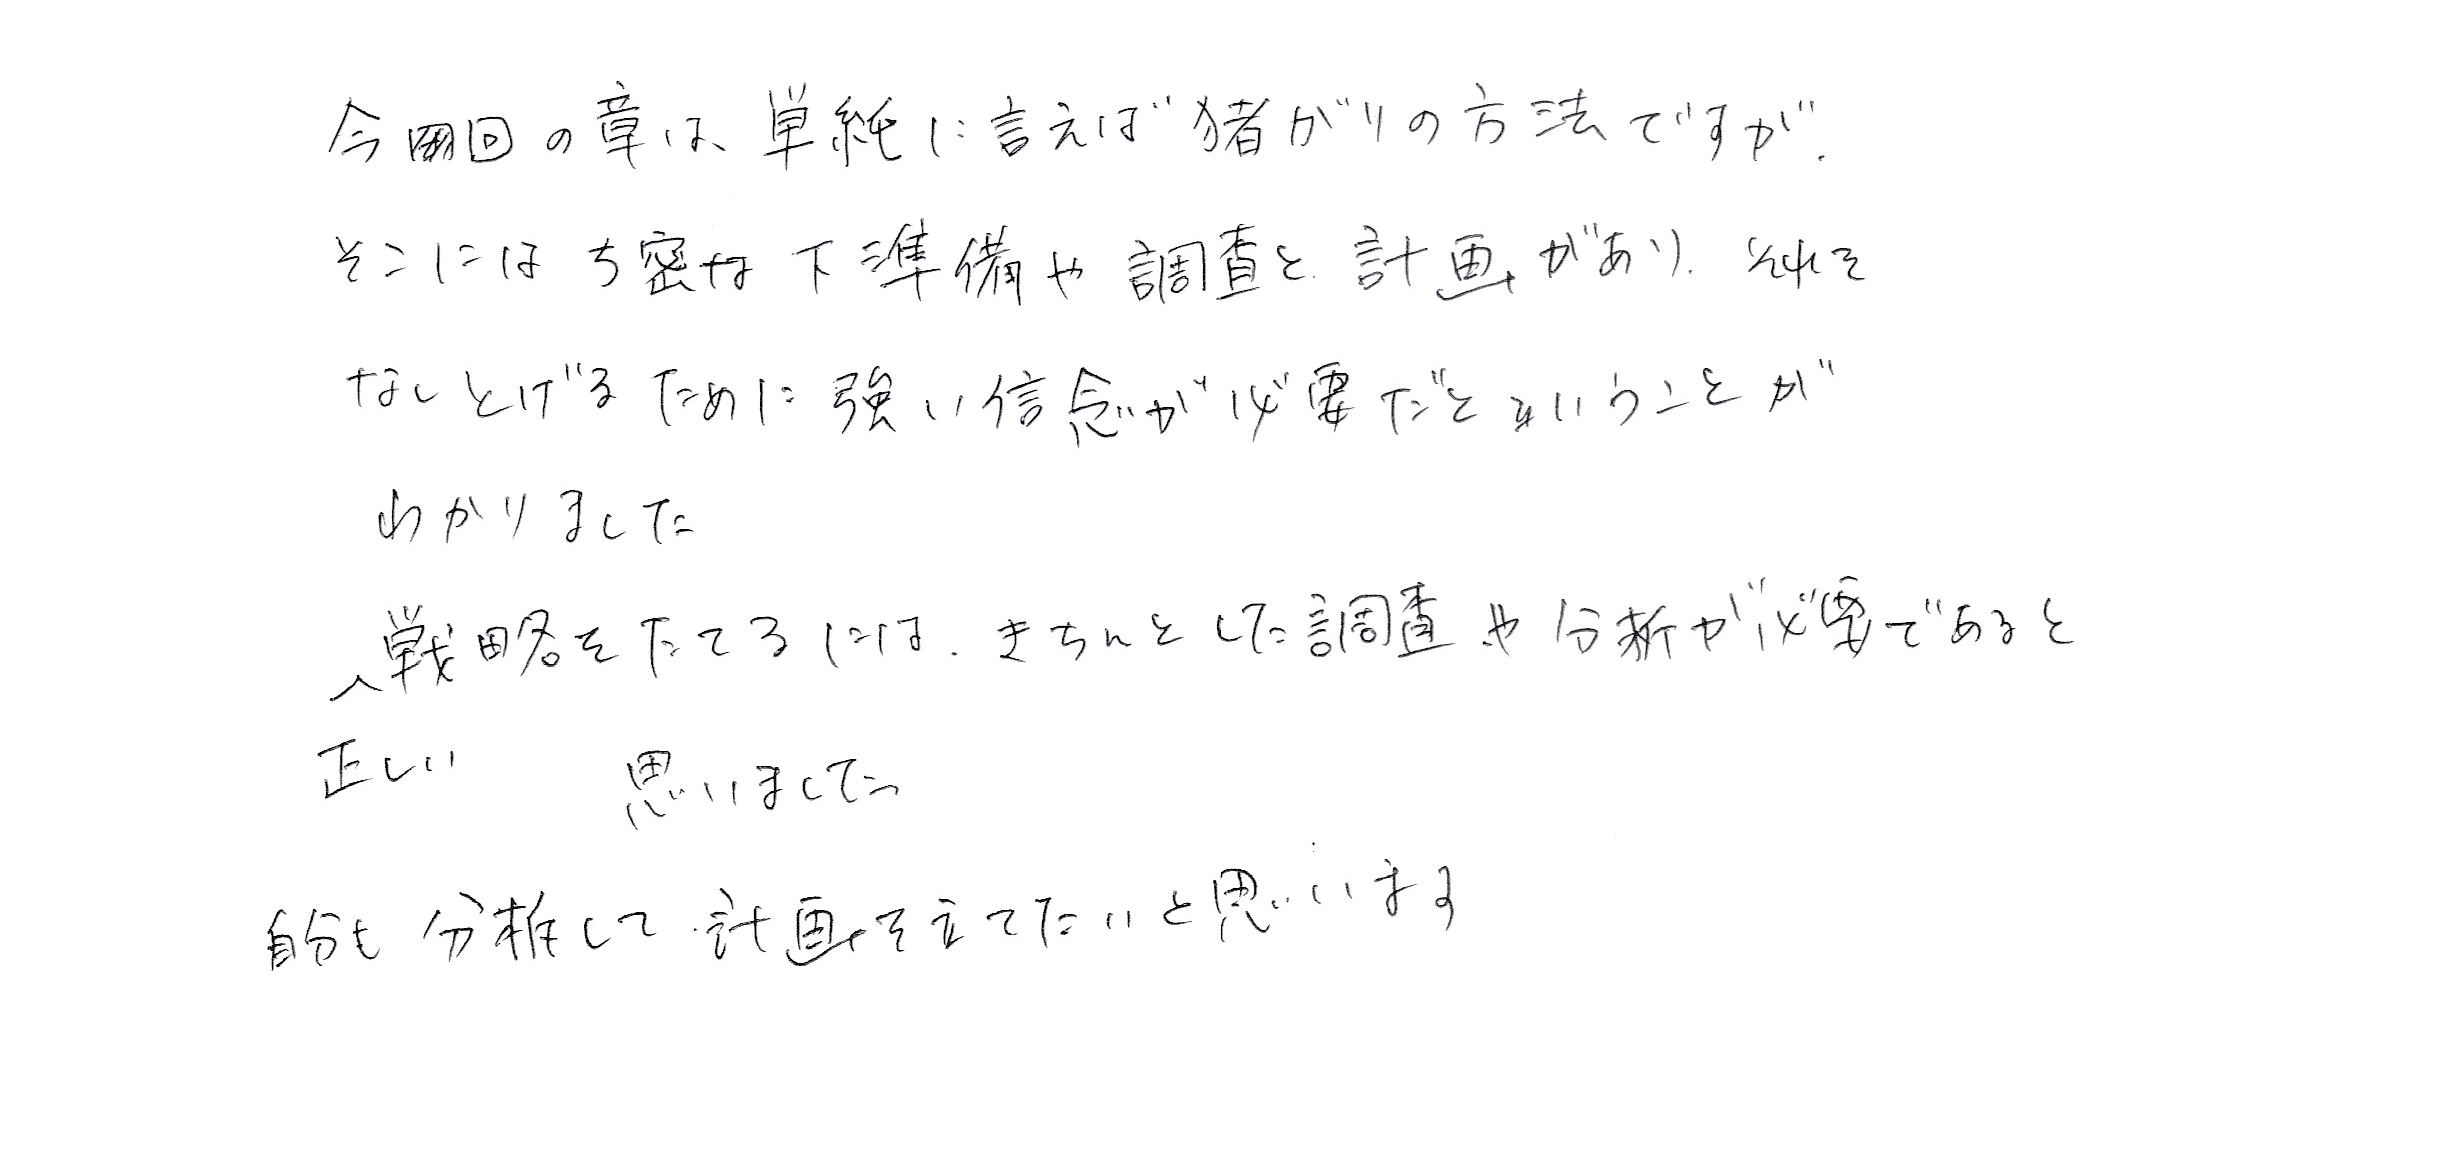 今回の章は、単純に言えば猪がりの方法ですが、
そこにはち密な下準備や調査と計画があり、それを
なしとげるために強い信念が必要だということが
わかりました
戦略をたてるには、きちんとした調査や分析が必要であると
正しい 思いました
自分も分析して計画を立てたいと思います